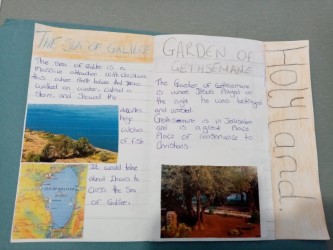 THE SEA OF GALILEE
The Sea of Galilee is a
massive attraction with Christians
this where their believe that Jesus
walked on water, calmed a
Storm and Showed the
disciples
huge
catches
of fish
It would take
about 2 hours to
cross the Sea
of Galilee.
GARDEN OF
GETHSEMANE
The Garden of Gethsemane
is where Jesus Prayed on
the night he was betrayed
and arrested.
Gethsemane is in Jerusalem
and is a great Place
Place of rememberance to
Christians
Holy Land